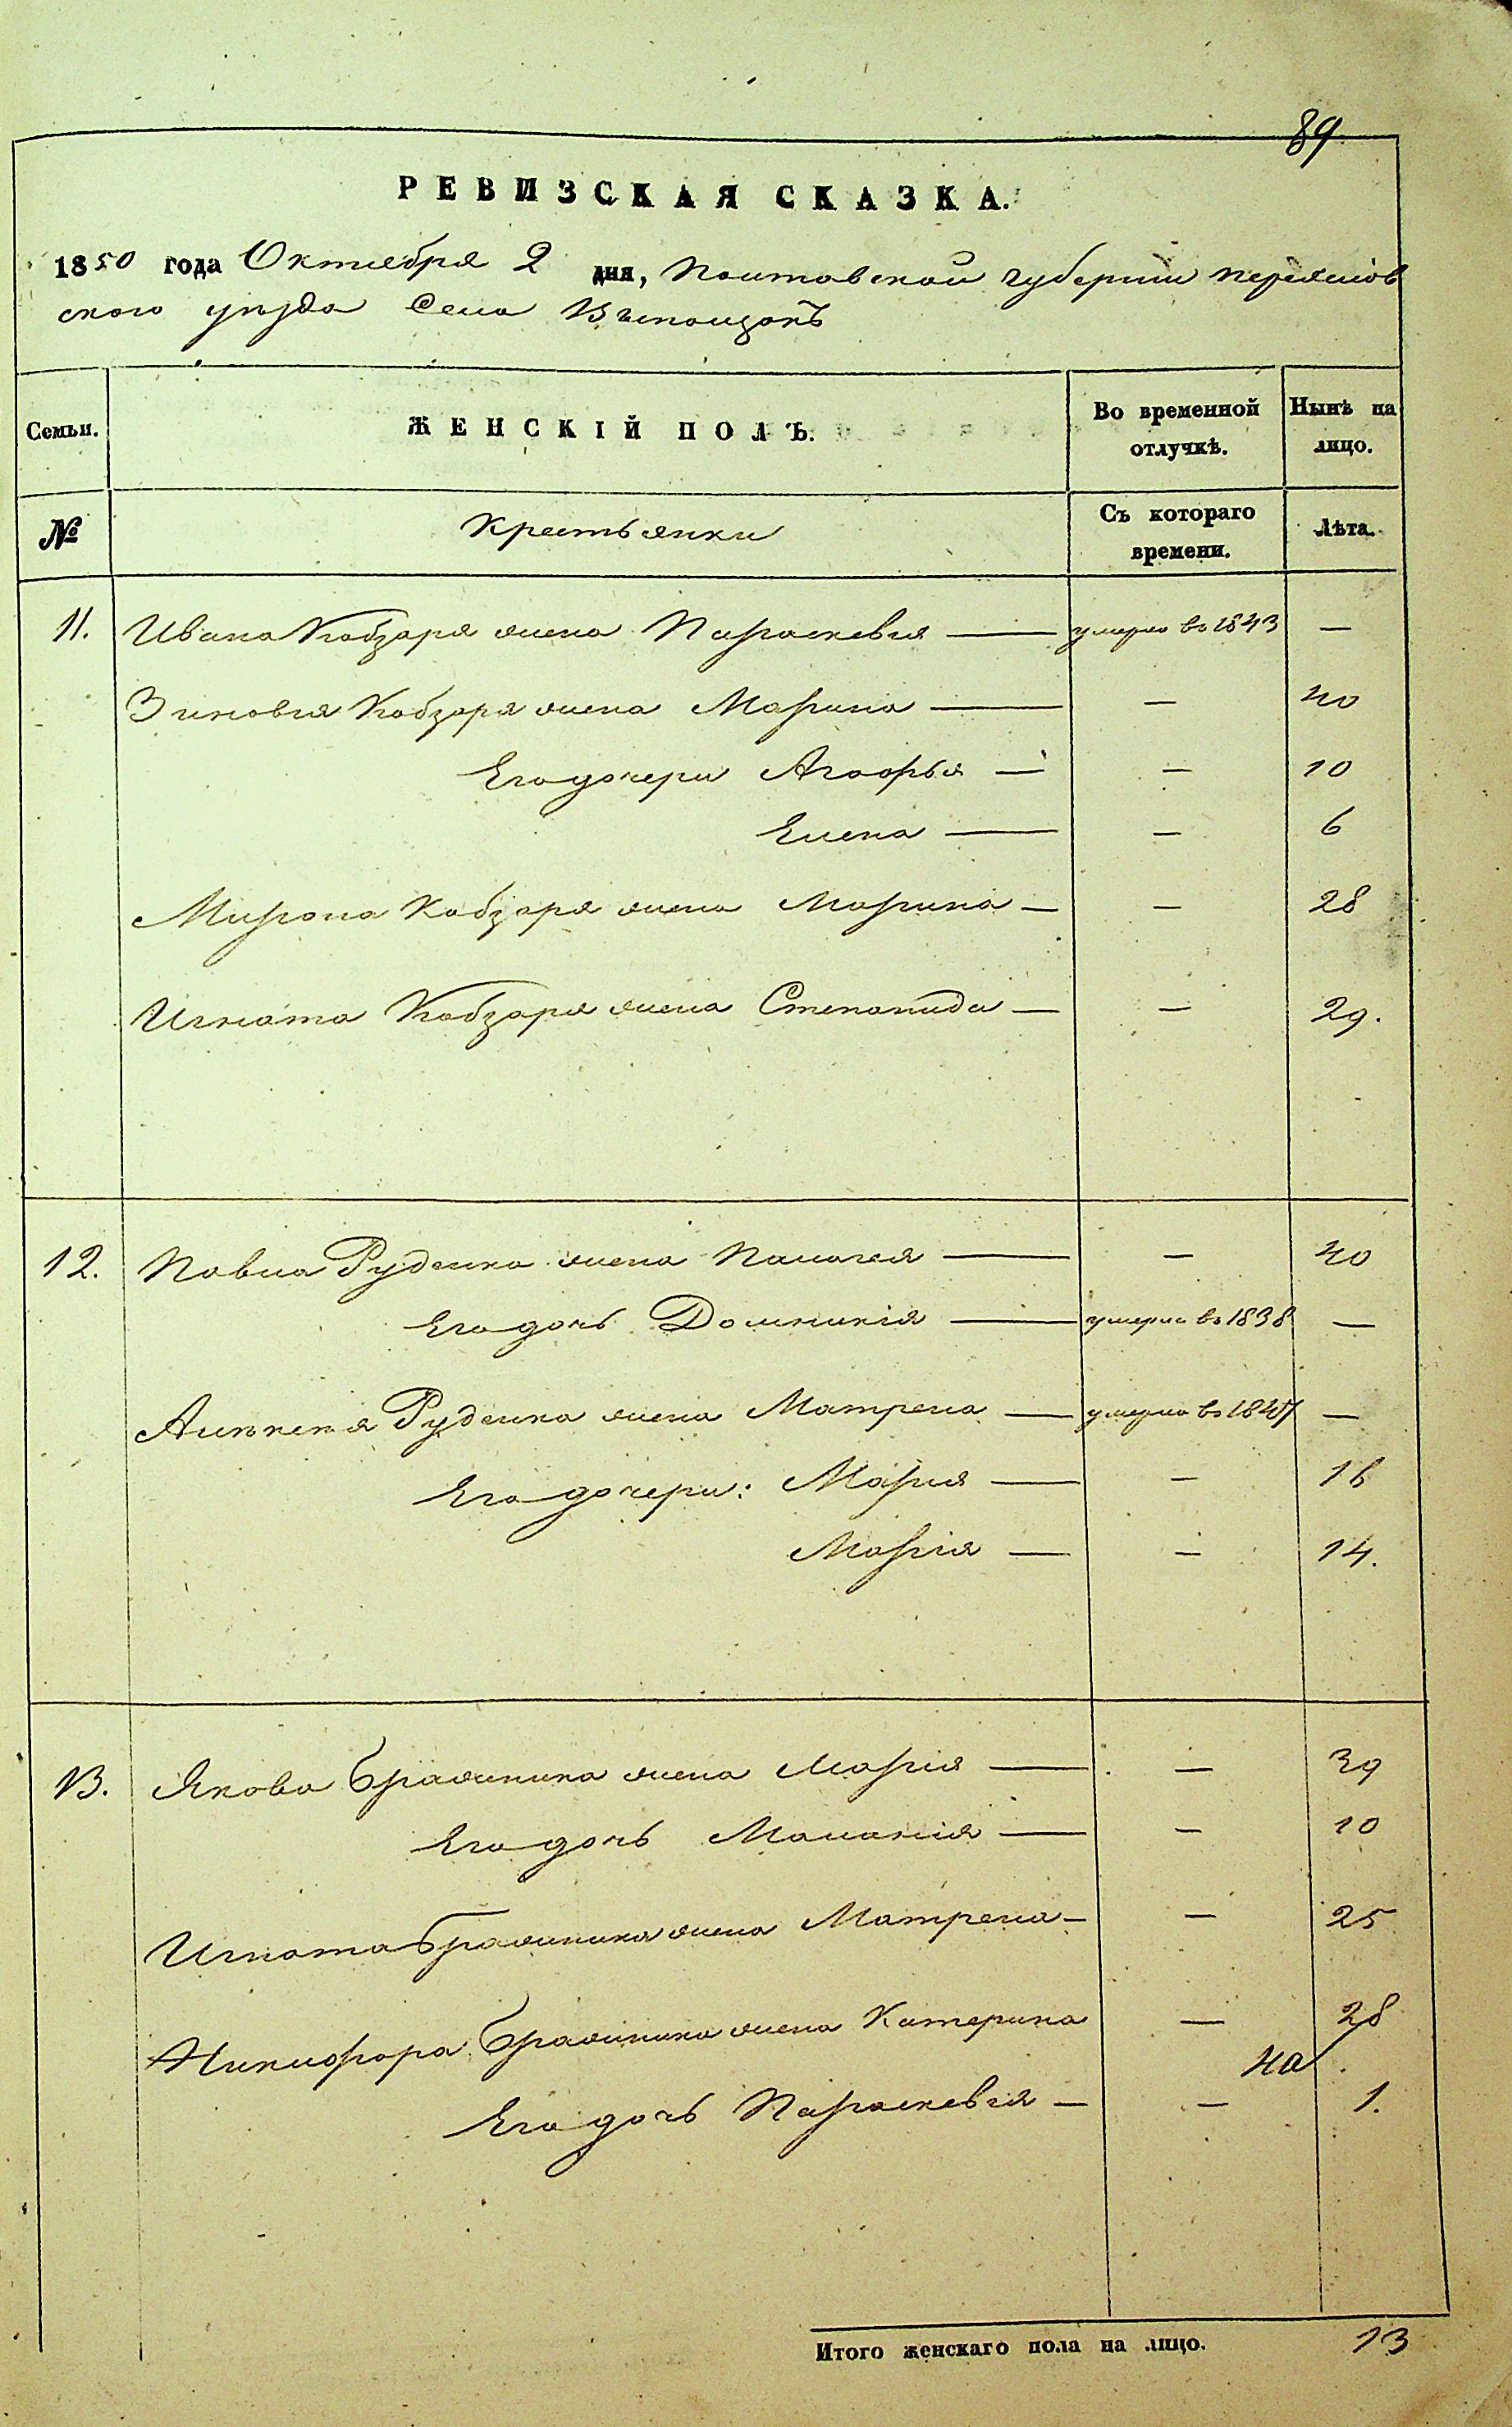 89
РЕВИЗСКАЯ СКАЗКА.
1850 года Октября 2 дня, Полтавской губернии переяслов
ского уѣзда Села
Семьи.
ЖЕНСКІЙ ПОЛЪ.
Во временной отлучкѣ.
Нынѣ на лицо.
№
Крестьянки
Съ котораго времени.
Лѣта.
11. Ивана Кобзаря жена Параскевия — умерла въ 1843 —
Зиновия Кобзаря жена Марина — — 40
Его дочери Агафья — — 10
Елена — — 6
Мирона Кобзаря жена Марина — — 28
Игната Кобзаря жена Степанида — — 29.
12. Павла Руденка жена Палагея — — 40
Его дочь Домникія — умерла въ 1838 —
Алексея Руденка жена Матрена — умерла въ 1847 —
Его дочери: Мария — — 16
Марія — — 14.
13. Якова Бражника жена Марія — — 39
Его дочь Маланія — — 10
Игната Бражника жена Матрена — — 25
Никифора Бражника жена Катерина — 28
на
Его дочь Параскевія — — 1.
Итого женскаго пола на лицо. 13